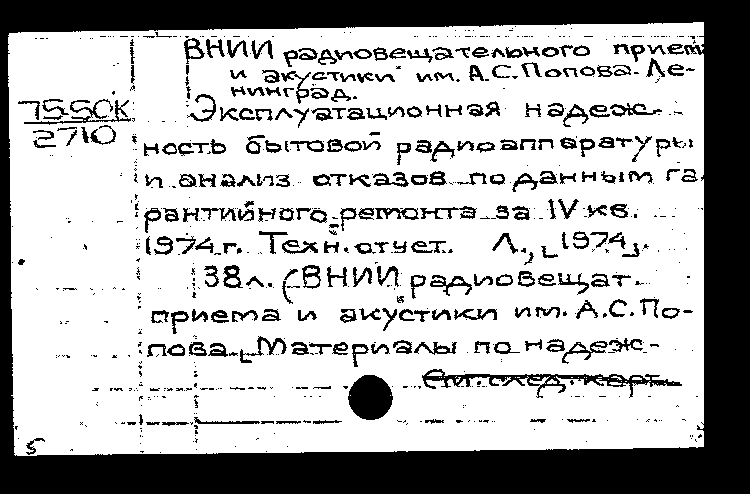 ВНИИ радиовещательного приема
и акустики им. А.С.Попова. Ле-
нинград.
75-50К
2710
Эксплуатационная надеж-
ность бытовой радиоаппаратуры
и анализ отказов по данным га-
рантийного ремонта за IV кв.
1974 г. Техн. отчет. Л., [1974].
38 л. (ВНИИ радиовещат.
приема и акустики им. А.С.По-
пова. [Материалы по надеж-
См. след. карт.
5